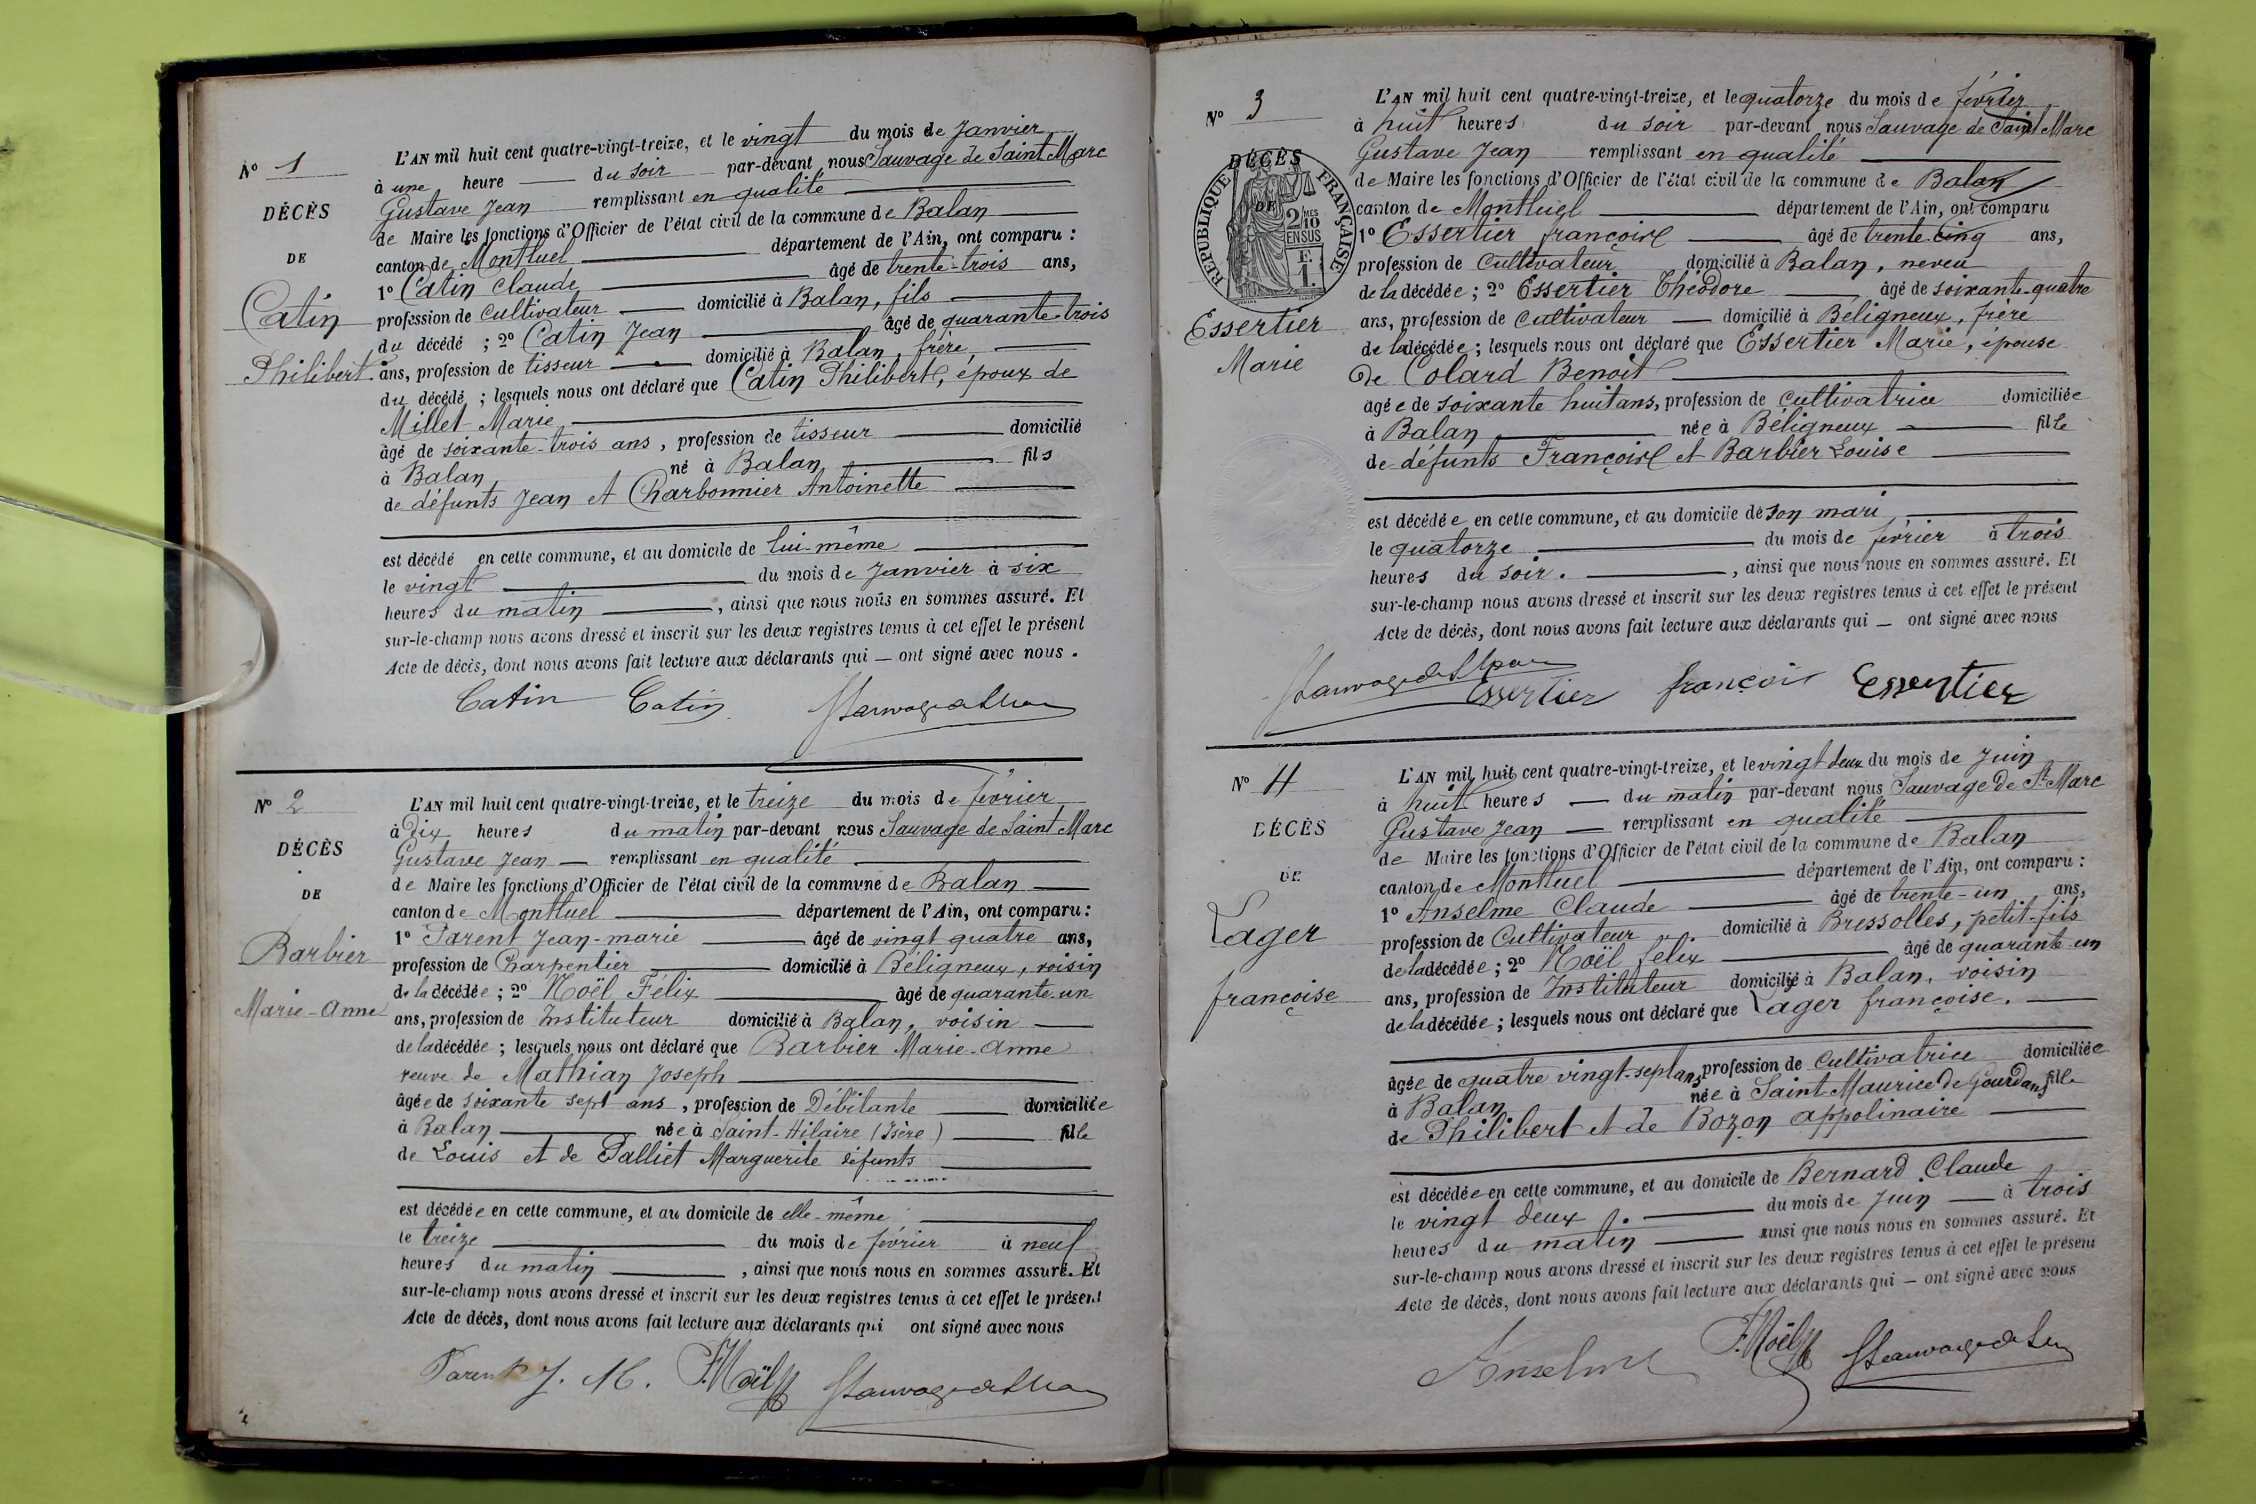 L'AN mil huit cent quatre-vingt-treize, et le vingt du mois de Janvier
N° 1
à une heure du soir par-devant nous Sauvage de Saint Marc
Gustave Jean remplissant en qualité
DÉCÈS
de Maire les fonctions d'Officier de l'état civil de la commune de Balan
DE
canton de Montluel département de l'Ain, ont comparu :
1° Catin Claude âgé de trente-trois ans,
Catin
profession de cultivateur domicilié à Balan, fils
du décédé ; 2° Catin Jean âgé de quarante-trois
Philibert
ans, profession de tisseur domicilié à Balan, frère
du décédé ; lesquels nous ont déclaré que Catin Philibert, époux de
Millet Marie
âgé de soixante-trois ans, profession de tisseur domicilié
à Balan né à Balan fils
de défunts Jean et Charbonnier Antoinette
est décédé en cette commune, et au domicile de lui-même
le vingt du mois de Janvier à six
heures du matin, ainsi que nous nous en sommes assuré. Et
sur-le-champ nous avons dressé et inscrit sur les deux registres tenus à cet effet le présent
Acte de décès, dont nous avons fait lecture aux déclarants qui — ont signé avec nous.
Catin Catin
N° 2
L'AN mil huit cent quatre-vingt-treize, et le treize du mois de février
à dix heures du matin par-devant nous Sauvage de Saint Marc
DÉCÈS
Gustave Jean — remplissant en qualité
de Maire les fonctions d'Officier de l'état civil de la commune de Balan
DE
canton de Montluel département de l'Ain, ont comparu :
1° Parent Jean-marie âgé de vingt quatre ans,
Barbier
profession de Charpentier domicilié à Béligneux, voisin
de la décédée ; 2° Noël Félix âgé de quarante-un
Marie-Anne
ans, profession de Instituteur domicilié à Balan, voisin
de la décédée ; lesquels nous ont déclaré que Barbier Marie-Anne
veuve de Mathian Joseph
âgée de soixante sept ans, profession de Débitante domiciliée
à Balan née à Saint-Hilaire (Isère) fille
de Louis et de Palliet Marguerite défunts
est décédée en cette commune, et au domicile de elle-même
le treize du mois de février à neuf
heures du matin, ainsi que nous nous en sommes assuré. Et
sur-le-champ nous avons dressé et inscrit sur les deux registres tenus à cet effet le présent
Acte de décès, dont nous avons fait lecture aux déclarants qui ont signé avec nous
Parent J. M. F. Noël
L'AN mil huit cent quatre-vingt-treize, et le quatorze du mois de février
N° 3
à huit heures du soir par-devant nous Sauvage de Saint Marc
Gustave Jean remplissant en qualité
DÉCÈS
RÉPUBLIQUE FRANÇAISE
de Maire les fonctions d'Officier de l'état civil de la commune de Balan
DE
2/10
MES
EN SUS
F.
1.
canton de Montluel département de l'Ain, ont comparu
1° Essertier françois âgé de trente-cinq ans,
profession de Cultivateur domicilié à Balan, neveu
de la décédée ; 2° Essertier Théodore âgé de soixante-quatre
Essertier
ans, profession de Cultivateur — domicilié à Béligneux, frère
Marie
de la décédée ; lesquels nous ont déclaré que Essertier Marie, épouse
de Colard Benoit
âgée de soixante huit ans, profession de Cultivatrice domiciliée
à Balan née à Béligneux fille
de défunts François et Barbier Louise
est décédée en cette commune, et au domicile de son mari
le quatorze du mois de février à trois
heures du soir. , ainsi que nous nous en sommes assuré. Et
sur-le-champ nous avons dressé et inscrit sur les deux registres tenus à cet effet le présent
Acte de décès, dont nous avons fait lecture aux déclarants qui — ont signé avec nous
Essertier françois Essertier
N° 4
L'AN mil huit cent quatre-vingt-treize, et le vingt deux du mois de Juin
à huit heures — du matin par-devant nous Sauvage de St Marc
DÉCÈS
Gustave Jean — remplissant en qualité
de Maire les fonctions d'Officier de l'état civil de la commune de Balan
DE
canton de Montluel département de l'Ain, ont comparu :
1° Anselme Claude âgé de trente-un ans,
Lager
profession de Cultivateur domicilié à Bressolles, petit-fils
de la décédée ; 2° Noël félix âgé de quarante-un
françoise
ans, profession de Instituteur domicilié à Balan, voisin
de la décédée ; lesquels nous ont déclaré que Lager françoise.
âgée de quatre vingt-sept ans profession de Cultivatrice domiciliée
à Balan née à Saint Maurice de Gourdans fille
de Philibert et de Bozon appolinaire
est décédée en cette commune, et au domicile de Bernard Claude
le vingt deux du mois de Juin — à trois
heures du matin ainsi que nous nous en sommes assuré. Et
sur-le-champ nous avons dressé et inscrit sur les deux registres tenus à cet effet le présent
Acte de décès, dont nous avons fait lecture aux déclarants qui — ont signé avec nous
Anselme F. Noël